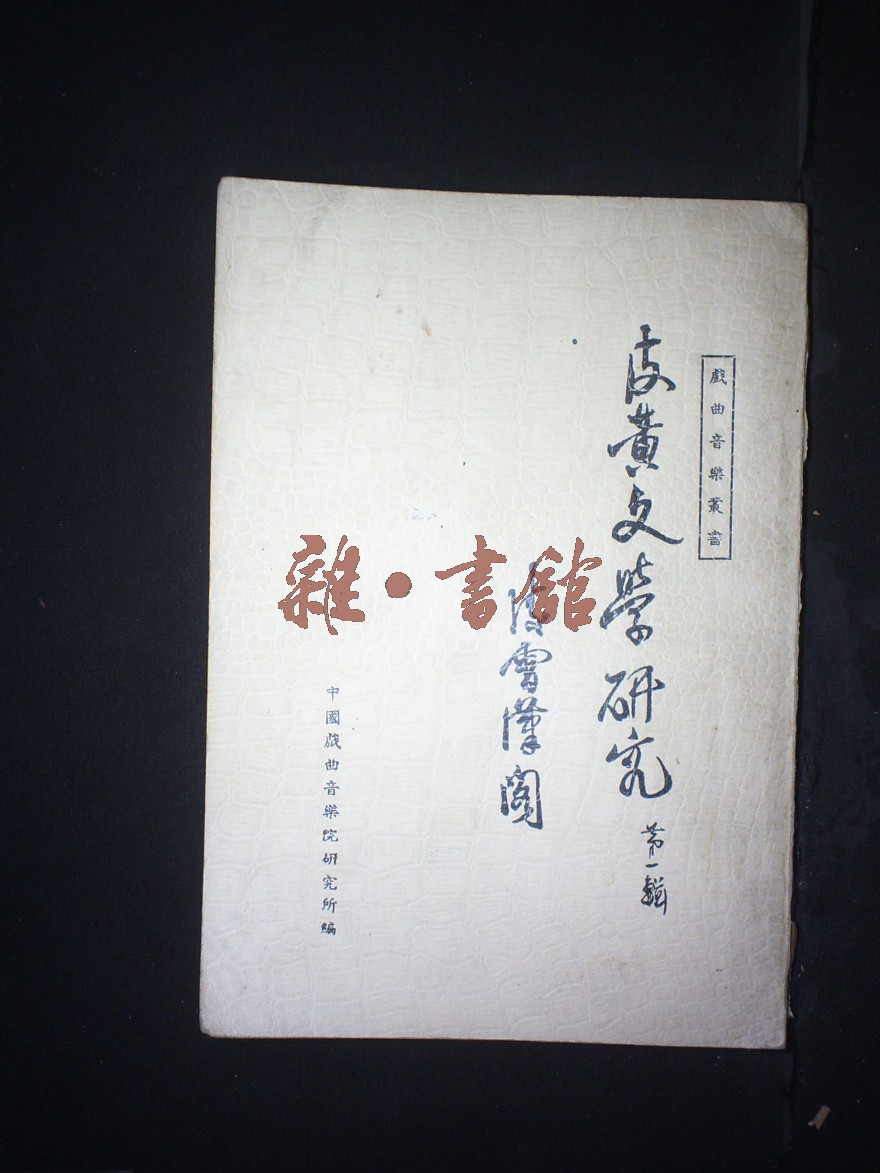 戲曲音樂叢書
皮黃文學研究
第一輯
凌霄漢閣
中國戲曲音樂院研究所編
雜·書館